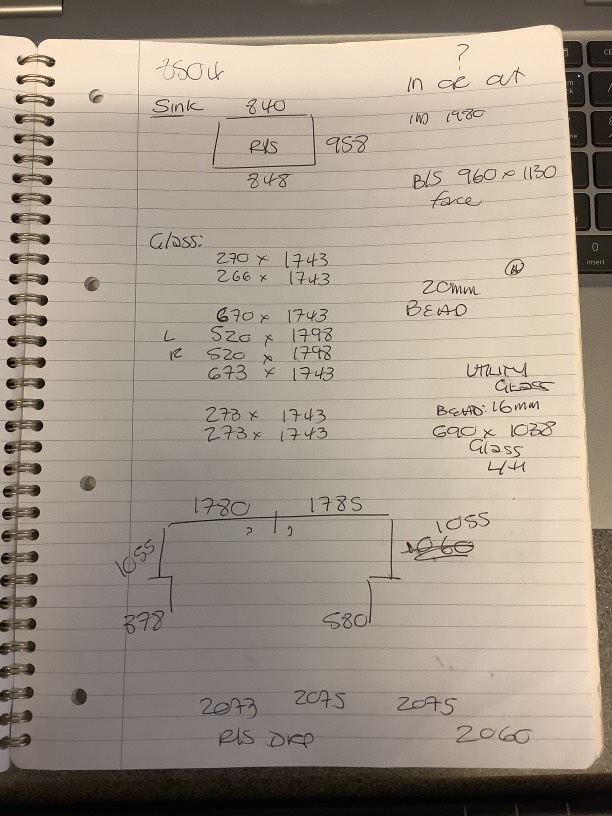 ?
In or out
Sink 840
(W) 1980
R/S 958
848
B/S 960 x 1130
face
Glass:
270 x 1743
266 x 1743
20mm
BEAD
670 x 1743
L 520 x 1798
R 520 x 1798
673 x 1743
UTILITY
GLASS
BEAD: 16mm
273 x 1743
273 x 1743
690 x 1038
Glass
4/4
1780 1785
1055
1055
1060
378
580
2073 2075 2075
R/S Drop
2060
insert